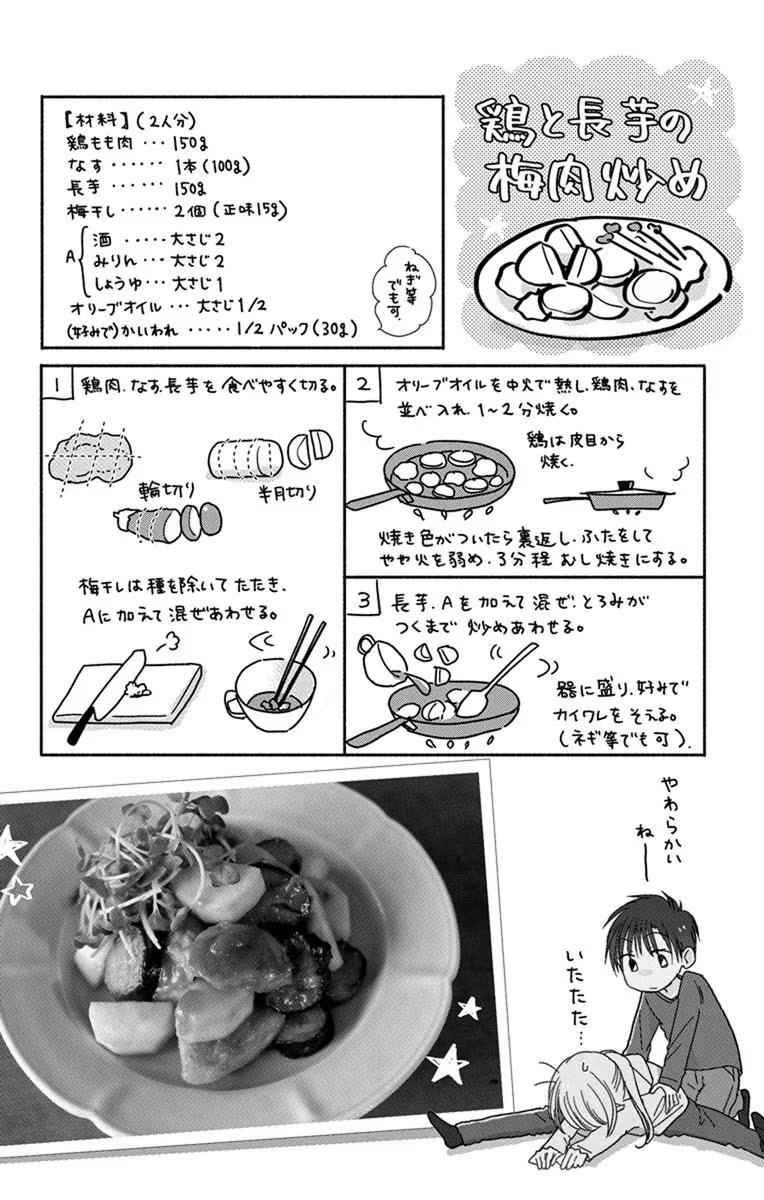 鶏と長芋の
梅肉炒め
【材料】(2人分)
鶏もも肉・・・150g
なす・・・・・・1本(100g)
長芋・・・・・・150g
梅干し・・・・・・2個(正味15g)
A
酒・・・・・大さじ2
みりん・・・大さじ2
しょうゆ・・・大さじ1
オリーブオイル・・・大さじ1/2
(好みで)かいわれ・・・・・1/2パック(30g)
ねぎ等
でも可.
1
鶏肉.なす.長芋を食べやすく切る。
輪切り
半月切り
梅干しは種を除いてたたき、
Aに加えて混ぜあわせる。
2
オリーブオイルを中火で熱し、鶏肉、なすを
並べ入れ、1〜2分焼く。
鶏は皮目から
焼く.
焼き色がついたら裏返し、ふたをして
やや火を弱め、3分程むし焼きにする。
3
長芋.Aを加えて混ぜ、とろみが
つくまで炒めあわせる。
器に盛り、好みで
カイワレをそえる。
(ネギ等でも可).
やわらかい
ねー
いたたた…